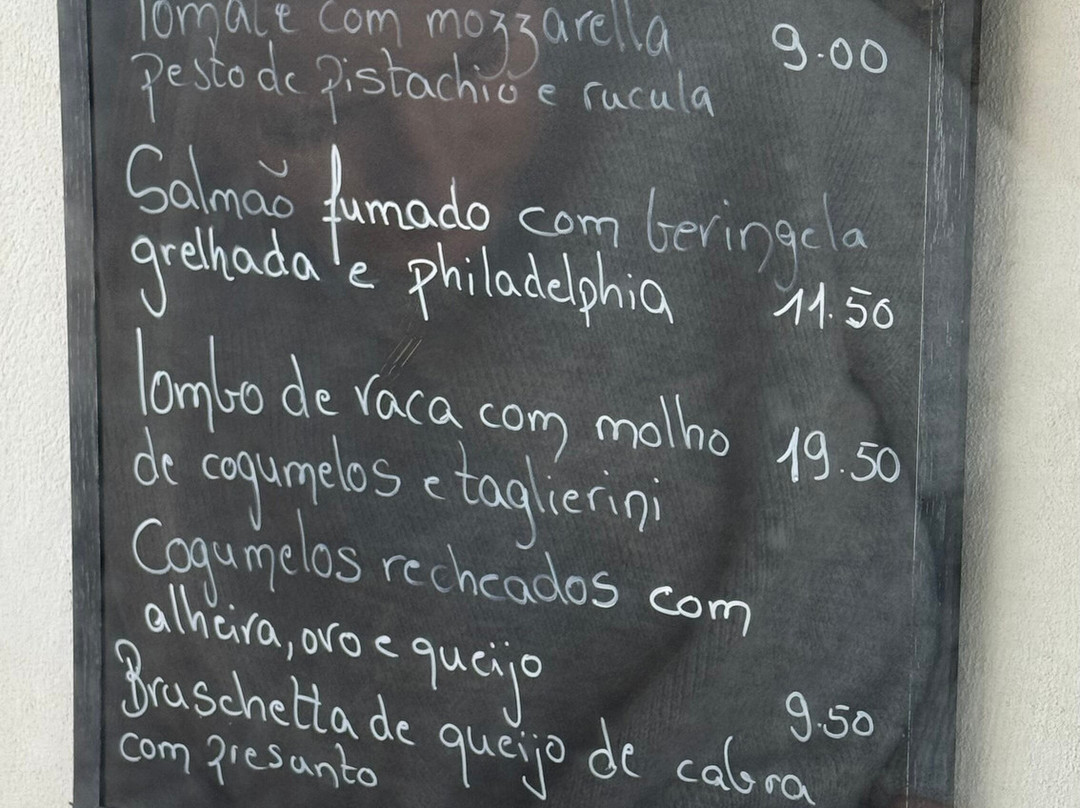 Tomate com mozzarella
9.00
pesto de pistachio e rucula
Salmão fumado com beringela
grelhada e philadelphia 11.50
lombo de vaca com molho 19.50
de cogumelos e taglierini
Cogumelos recheados com
alheira, ovo e queijo
9.50
Bruschetta de queijo de cabra
com presunto